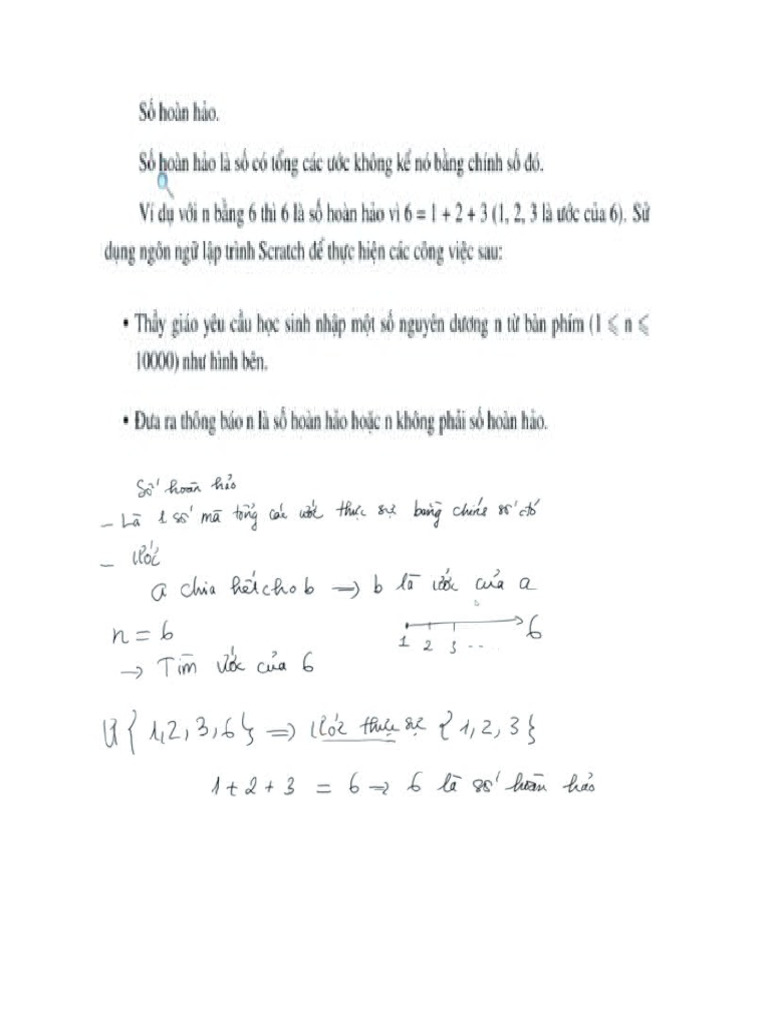 Số hoàn hảo.
Số hoàn hảo là số có tổng các ước không kể nó bằng chính số đó.
Ví dụ với n bằng 6 thì 6 là số hoàn hảo vì 6 = 1 + 2 + 3 (1, 2, 3 là ước của 6). Sử
dụng ngôn ngữ lập trình Scratch để thực hiện các công việc sau:
• Thầy giáo yêu cầu học sinh nhập một số nguyên dương n từ bàn phím (1 ⩽ n ⩽
10000) như hình bên.
• Đưa ra thông báo n là số hoàn hảo hoặc n không phải số hoàn hảo.
Số hoàn hảo
- Là 1 số mà tổng các ước thực sự bằng chính số đó
- Ước
a chia hết cho b → b là ước của a
n = 6
1 2 3 ... 6
→ Tìm ước của 6
Ư { 1, 2, 3, 6 } ⇒ Ước thực sự { 1, 2, 3 }
1 + 2 + 3 = 6 → 6 là số hoàn hảo